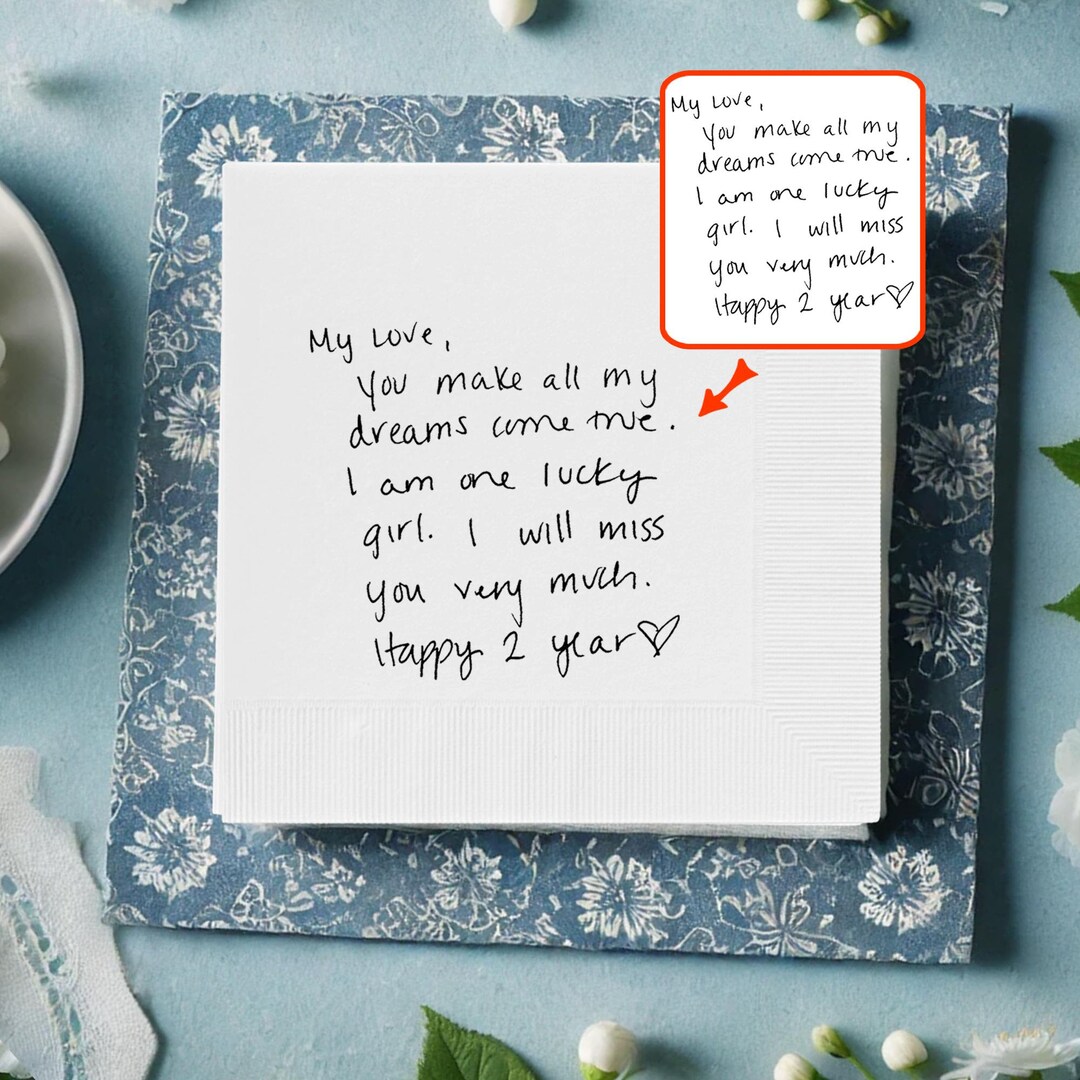 My Love,
You make all my
dreams come true.
I am one lucky
girl. I will miss
you very much.
Happy 2 year♡
My Love,
You make all my
dreams come true.
I am one lucky
girl. I will miss
you very much.
Happy 2 year♡